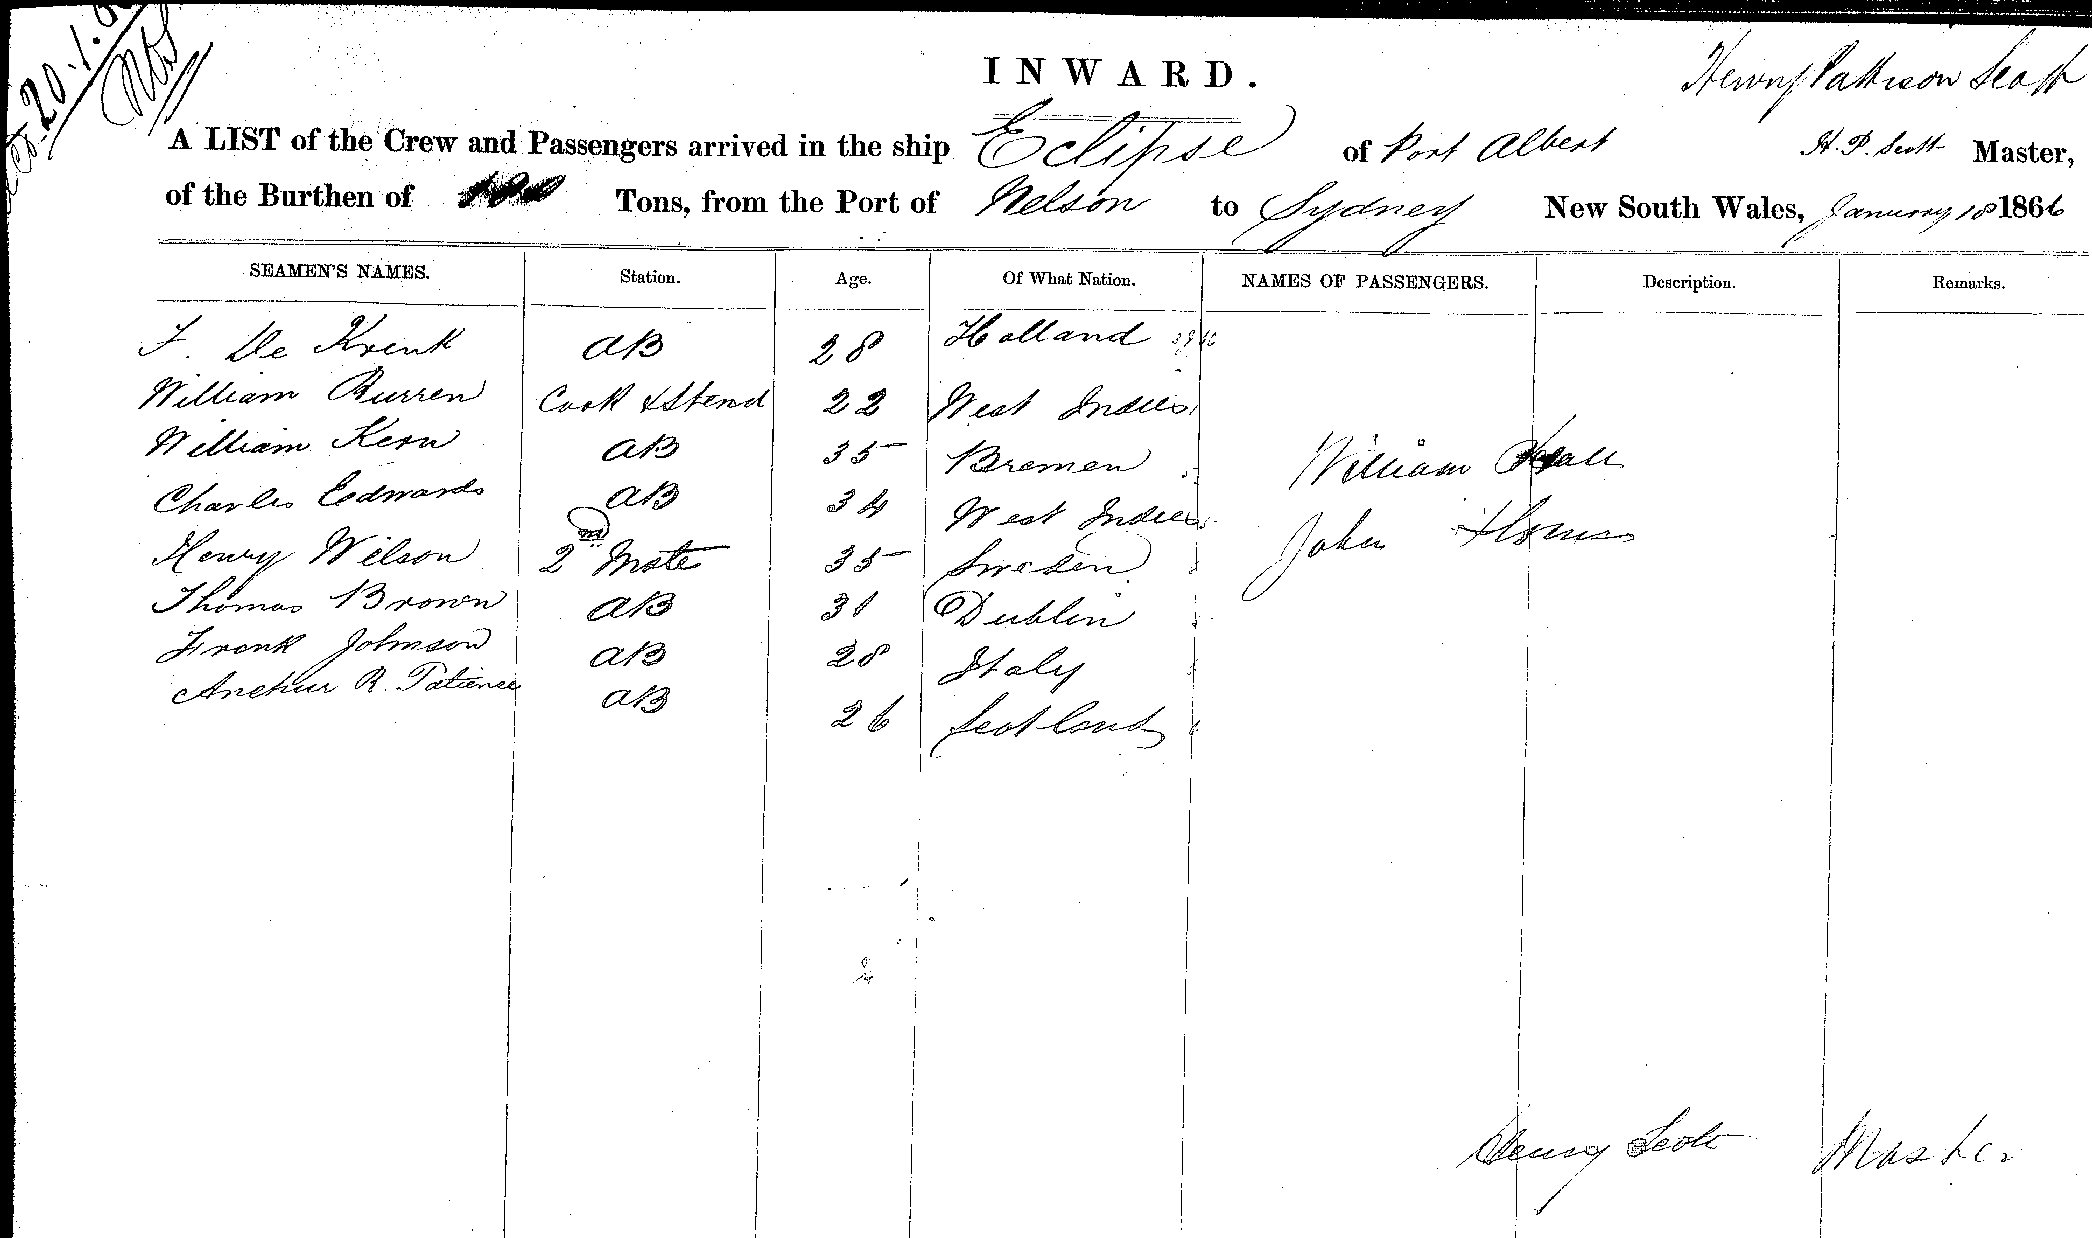 20.1.
INWARD.
Henry Pattison Scott
A LIST of the Crew and Passengers arrived in the ship Eclipse of Port Albert H. P. Scott Master,
of the Burthen of Tons, from the Port of Nelson to Sydney New South Wales, January 18 1866
SEAMEN'S NAMES. Station. Age. Of What Nation. NAMES OF PASSENGERS. Description. Remarks.
F. De Krenk AB 28 Holland
William Burren Cook & Stend 22 West Indies
William Kern AB 35 Bremen William
Charles Eedwards AB 34 West Indies John
Henry Wilson 2nd Mate 35 Sweden
Thomas Brown AB 31 Dublin
Frank Johnson AB 28 Italy
Arethur R. Patience AB 26 Scotland
Henry Scott Master